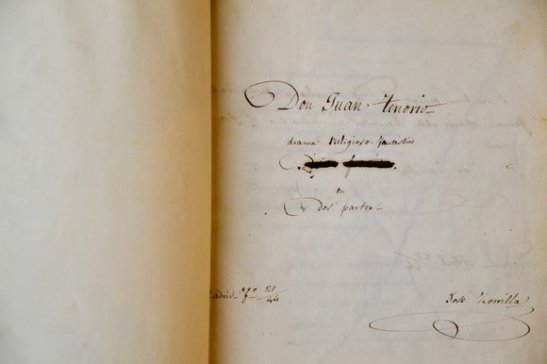 Don Juan Tenorio
drama religioso-fantástico
en
dos partes.
José Zorrilla